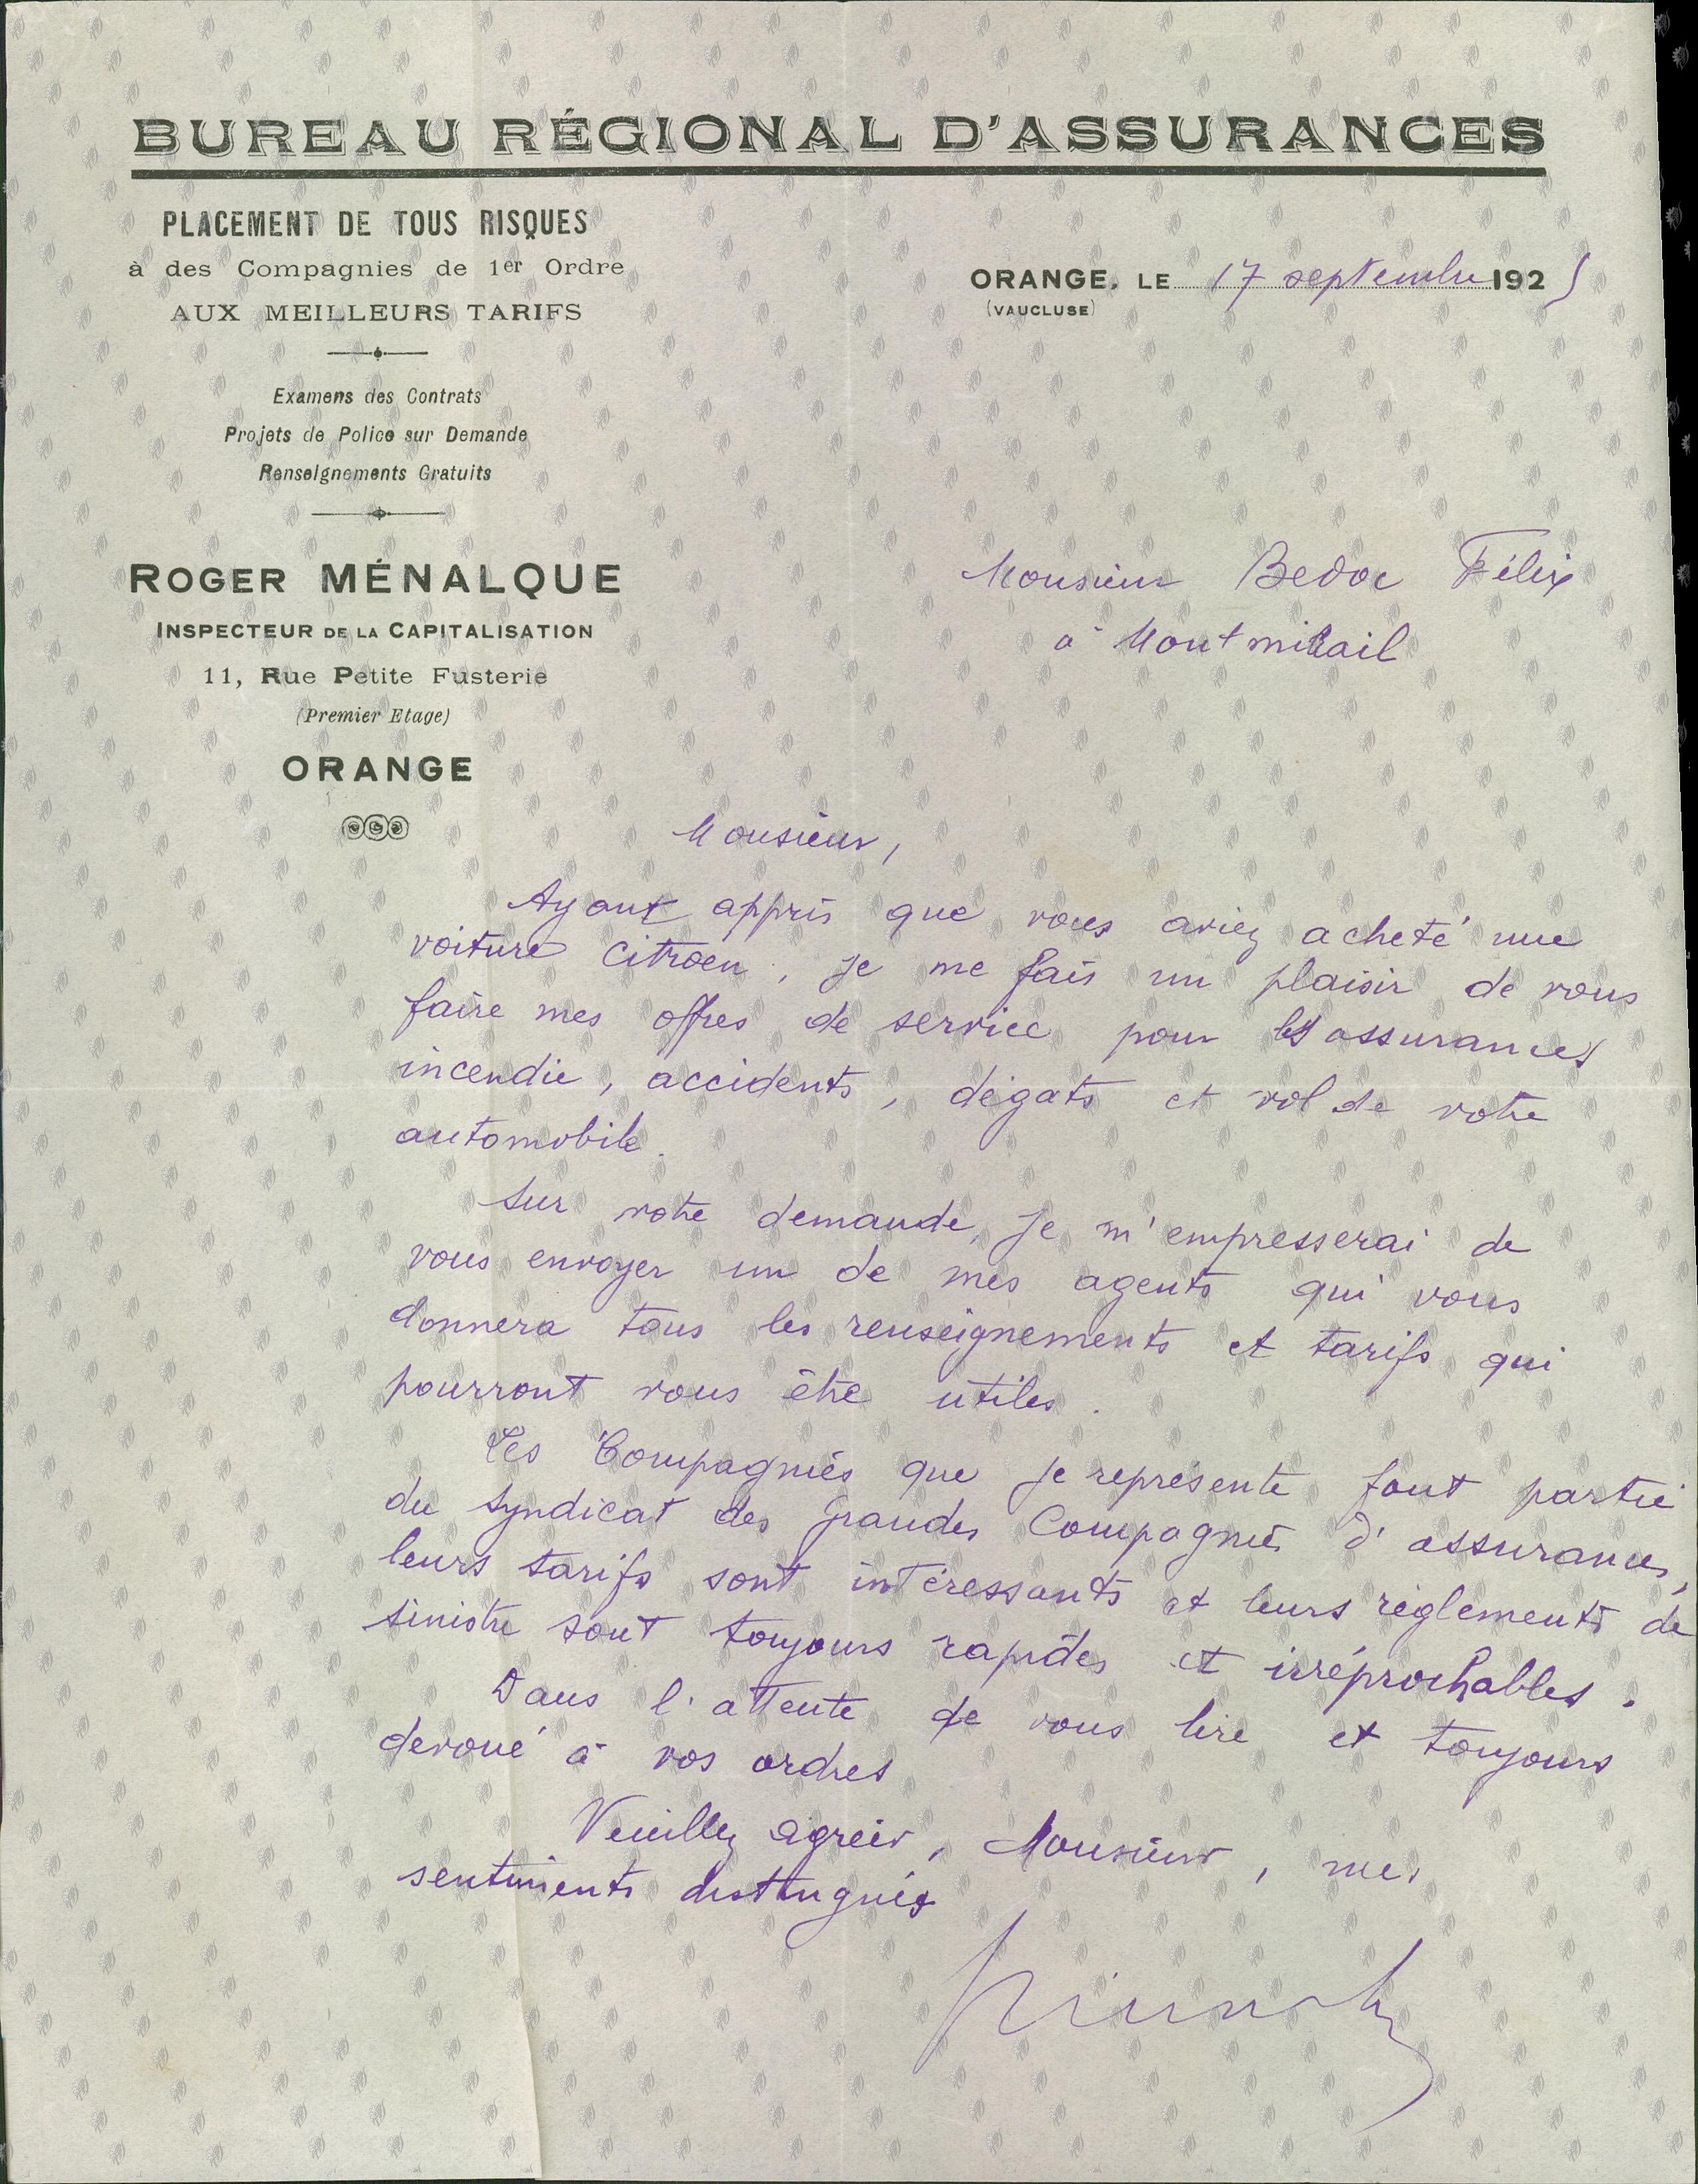 BUREAU RÉGIONAL D'ASSURANCES
PLACEMENT DE TOUS RISQUES
à des Compagnies de 1er Ordre
AUX MEILLEURS TARIFS
Examens des Contrats
Projets de Police sur Demande
Renseignements Gratuits
ROGER MÉNALQUE
INSPECTEUR DE LA CAPITALISATION
11, Rue Petite Fusterie
(Premier Etage)
ORANGE
ORANGE, LE 17 septembre 1925
(VAUCLUSE)
Monsieur Bedoc Félix
à Montmirail
Monsieur,
Ayant appris que vous aviez acheté une
voiture Citroen, je me fais un plaisir de vous
faire mes offres de service pour les assurances
incendie, accidents, dégats et vol de votre
automobile.
Sur votre demande, je m'empresserai de
vous envoyer un de mes agents qui vous
donnera tous les renseignements et tarifs qui
pourront vous être utiles.
Les Compagnies que je représente font partie
du Syndicat des Grandes Compagnies d'assurances,
leurs tarifs sont intéressants et leurs règlements de
sinistre sont toujours rapides et irréprochables.
Dans l'attente de vous lire et toujours
dévoué à vos ordres
Veuillez agréer, Monsieur, mes
sentiments distingués